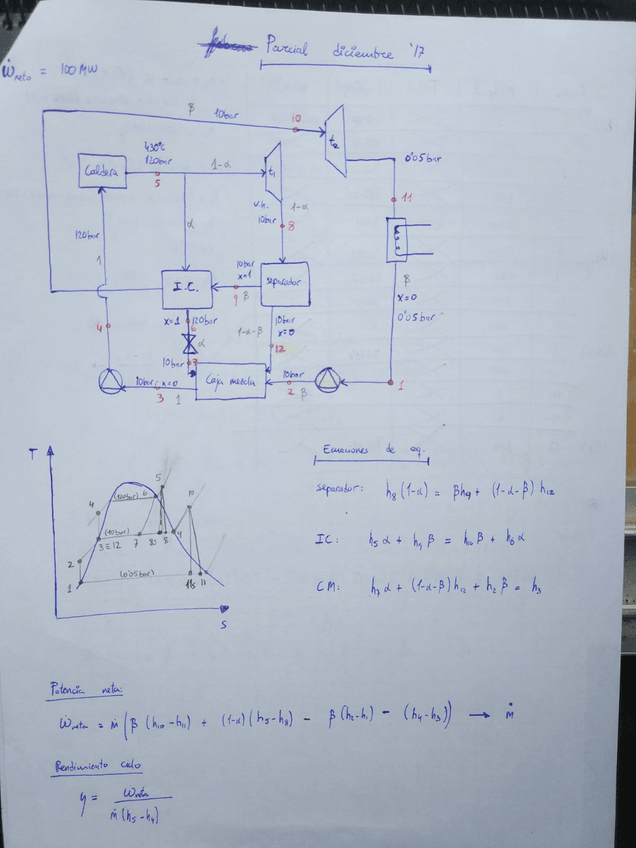 Parcial diciembre '17
Ẇneto = 100 MW
β
10bar
10
430ºC
120bar
1-α
t1
0'05bar
Caldera
5
11
α
v.h.
10bar
1-α
8
120bar
1
10bar
x=1
I.C.
separador
9 β
β
x=0
0'05bar
x=1
120bar
6
1-α-β
10bar
x=0
4
α
12
10bar
7
10bar
10bar x=0
Caja mezcla
1
3
1
2
β
T
5
(120bar)
6
10
4
(10bar)
3≡12
7
8s
8
9
2
1
(0'05bar)
11s
11
s
Ecuaciones de eq.
separador: h8 (1-α) = βh9 + (1-α-β) h12
IC: h5 α + h9 β = h10 β + h6 α
CM: h7 α + (1-α-β) h12 + h2 β = h3
Potencia neta:
Ẇneta = ṁ (β (h10-h11) + (1-α)(h5-h8) - β(h2-h1) - (h4-h3)) → ṁ
Rendimiento ciclo
η = Ẇneta / ṁ(h5-h4)